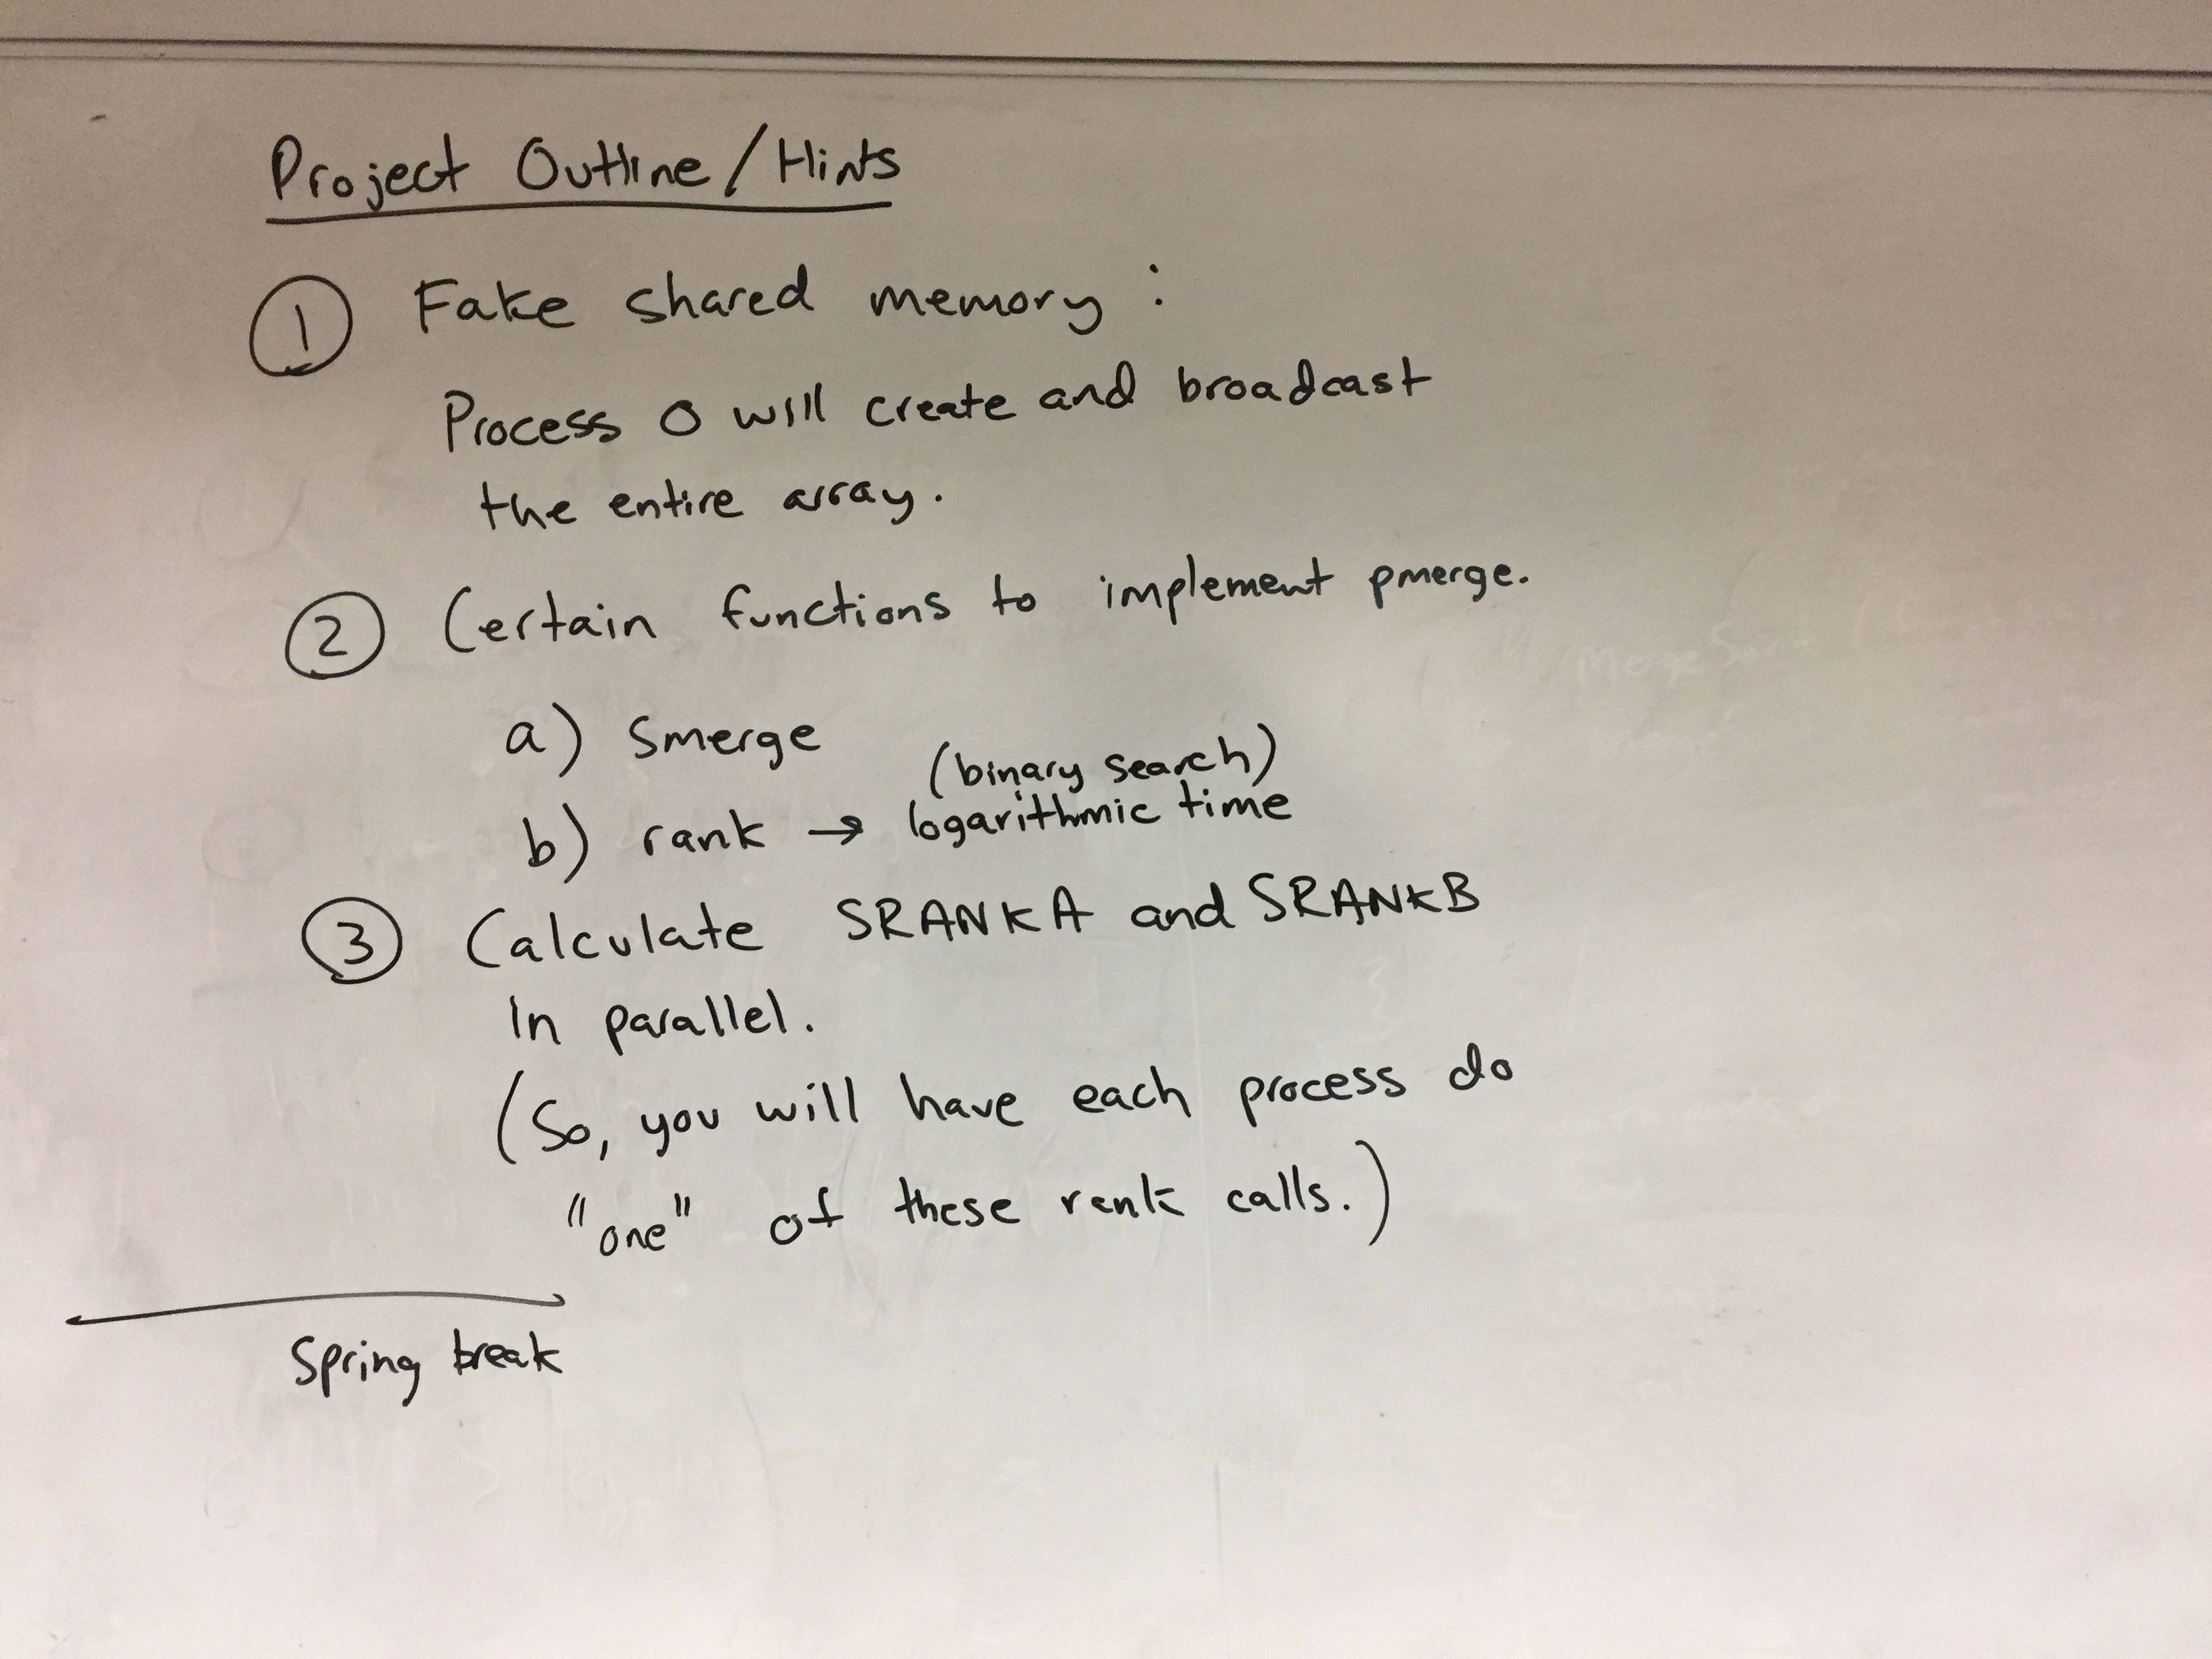 Project Outline/Hints
① Fake shared memory:
Process 0 will create and broadcast
the entire array.
② Certain functions to implement pmerge.
a) smerge
(binary search)
b) rank → logarithmic time
③ Calculate SRANKA and SRANKB
in parallel.
(So, you will have each process do
"one" of these rank calls.)
Spring break